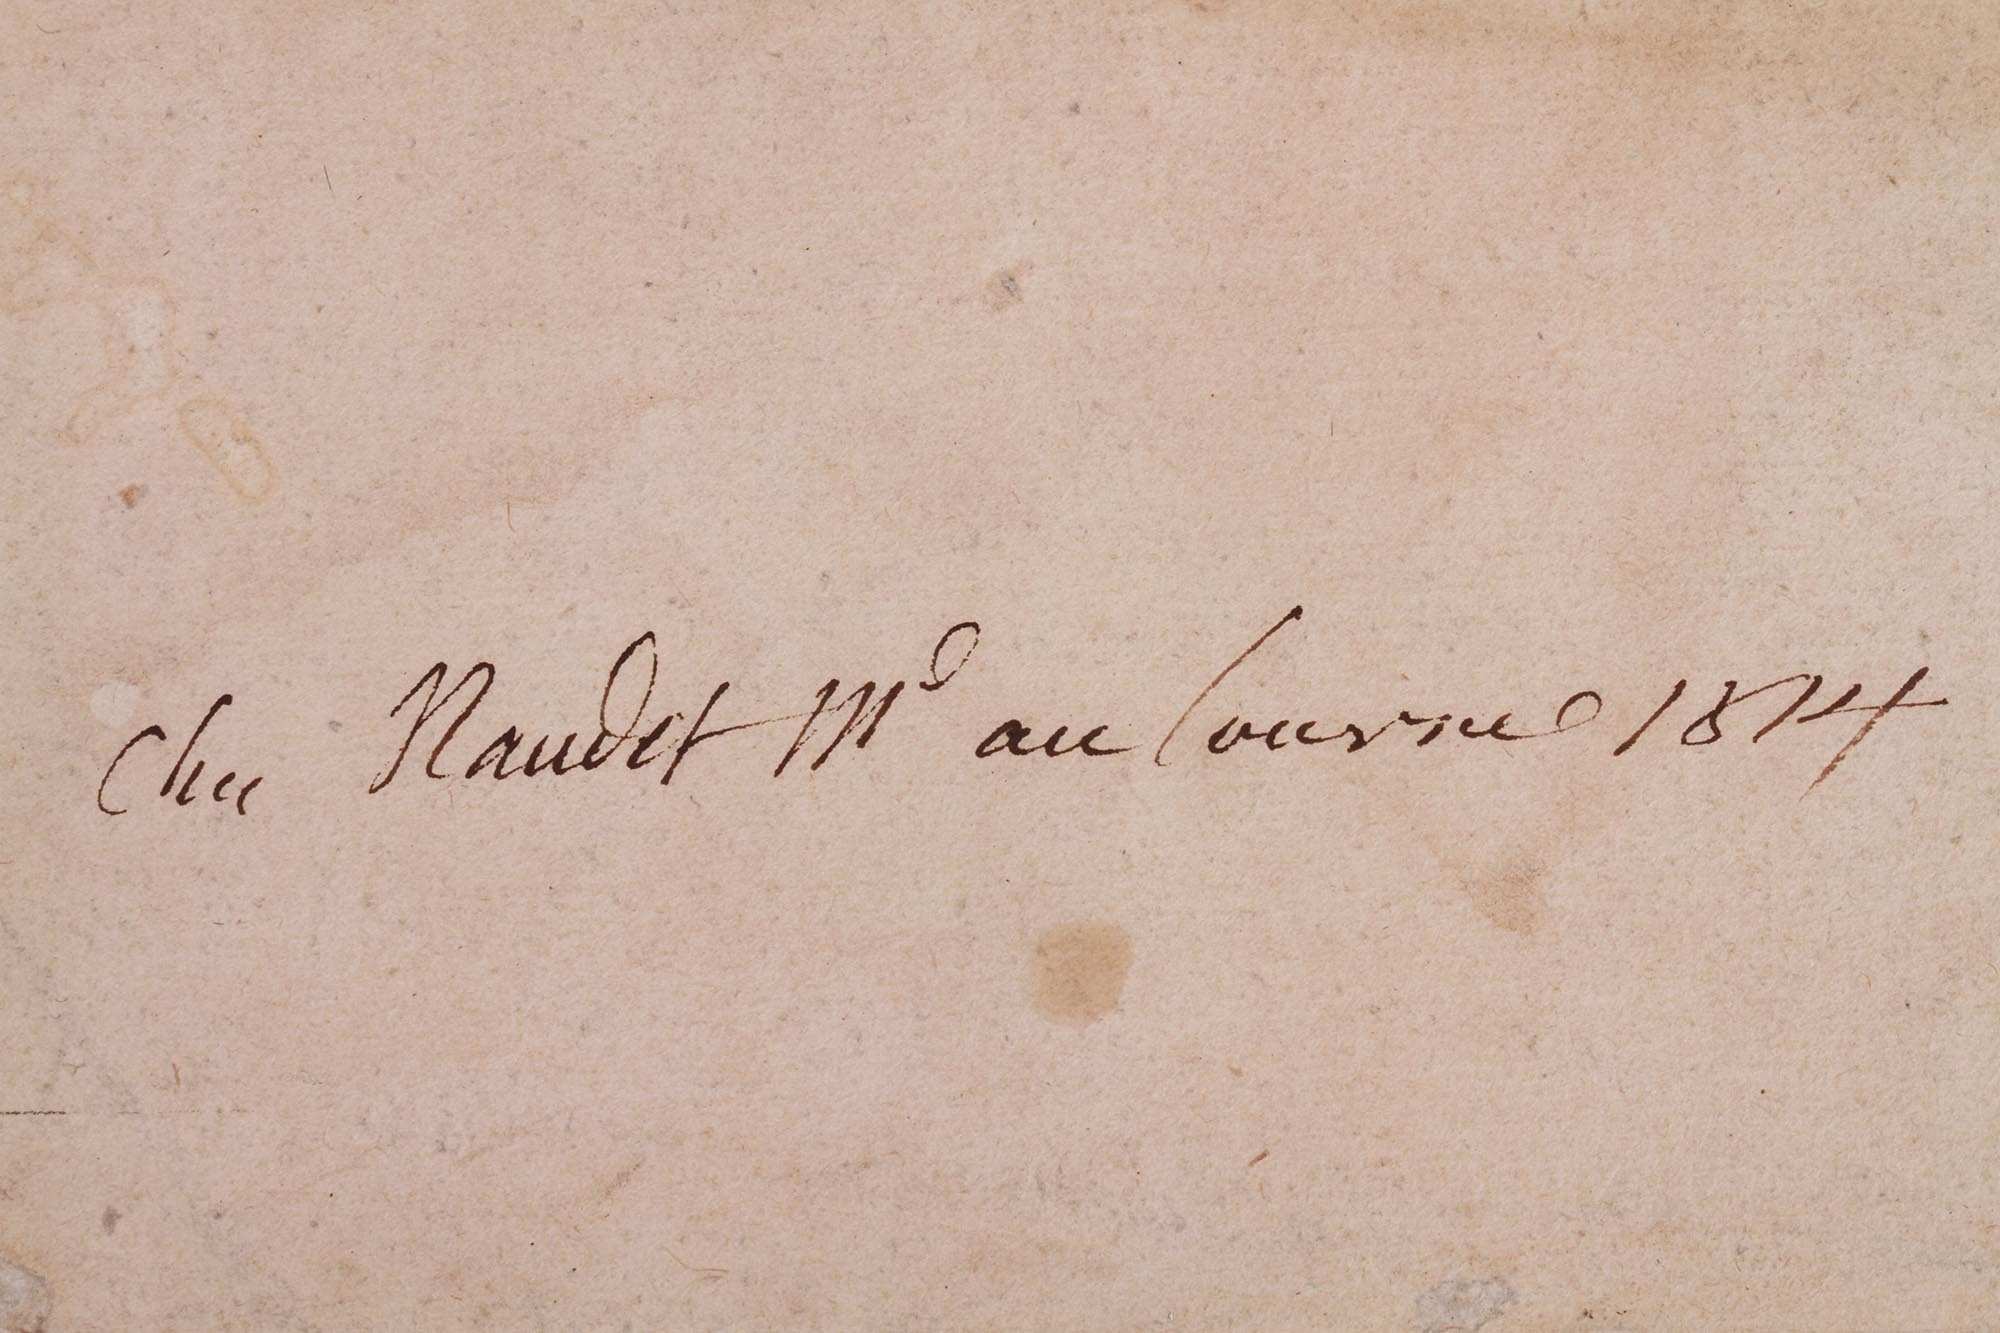 chez Naudet Md au Louvre 1814